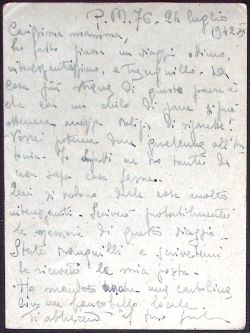 P.M. 76, 24 luglio
1942 XX
Carissima mamma,
ho fatto finora un viaggio ottimo,
interessantissimo, e tranquillo. La
cosa più strana di questo paese è
che con un chilo di pane si può
ottenere mezza valigia di sigarette!
Vorrei poterne dare qualcuna all'
ne ho tante da
non saper cosa farne.
Qui si vedono delle cose molto
interessanti. Scriverò probabilmente
le memorie di questo viaggio
State tranquilli e scrivetemi
se ricevete la mia posta.
Ho mandato anche una cartolina
con un francobollo locale.
Ti abbraccio il tuo